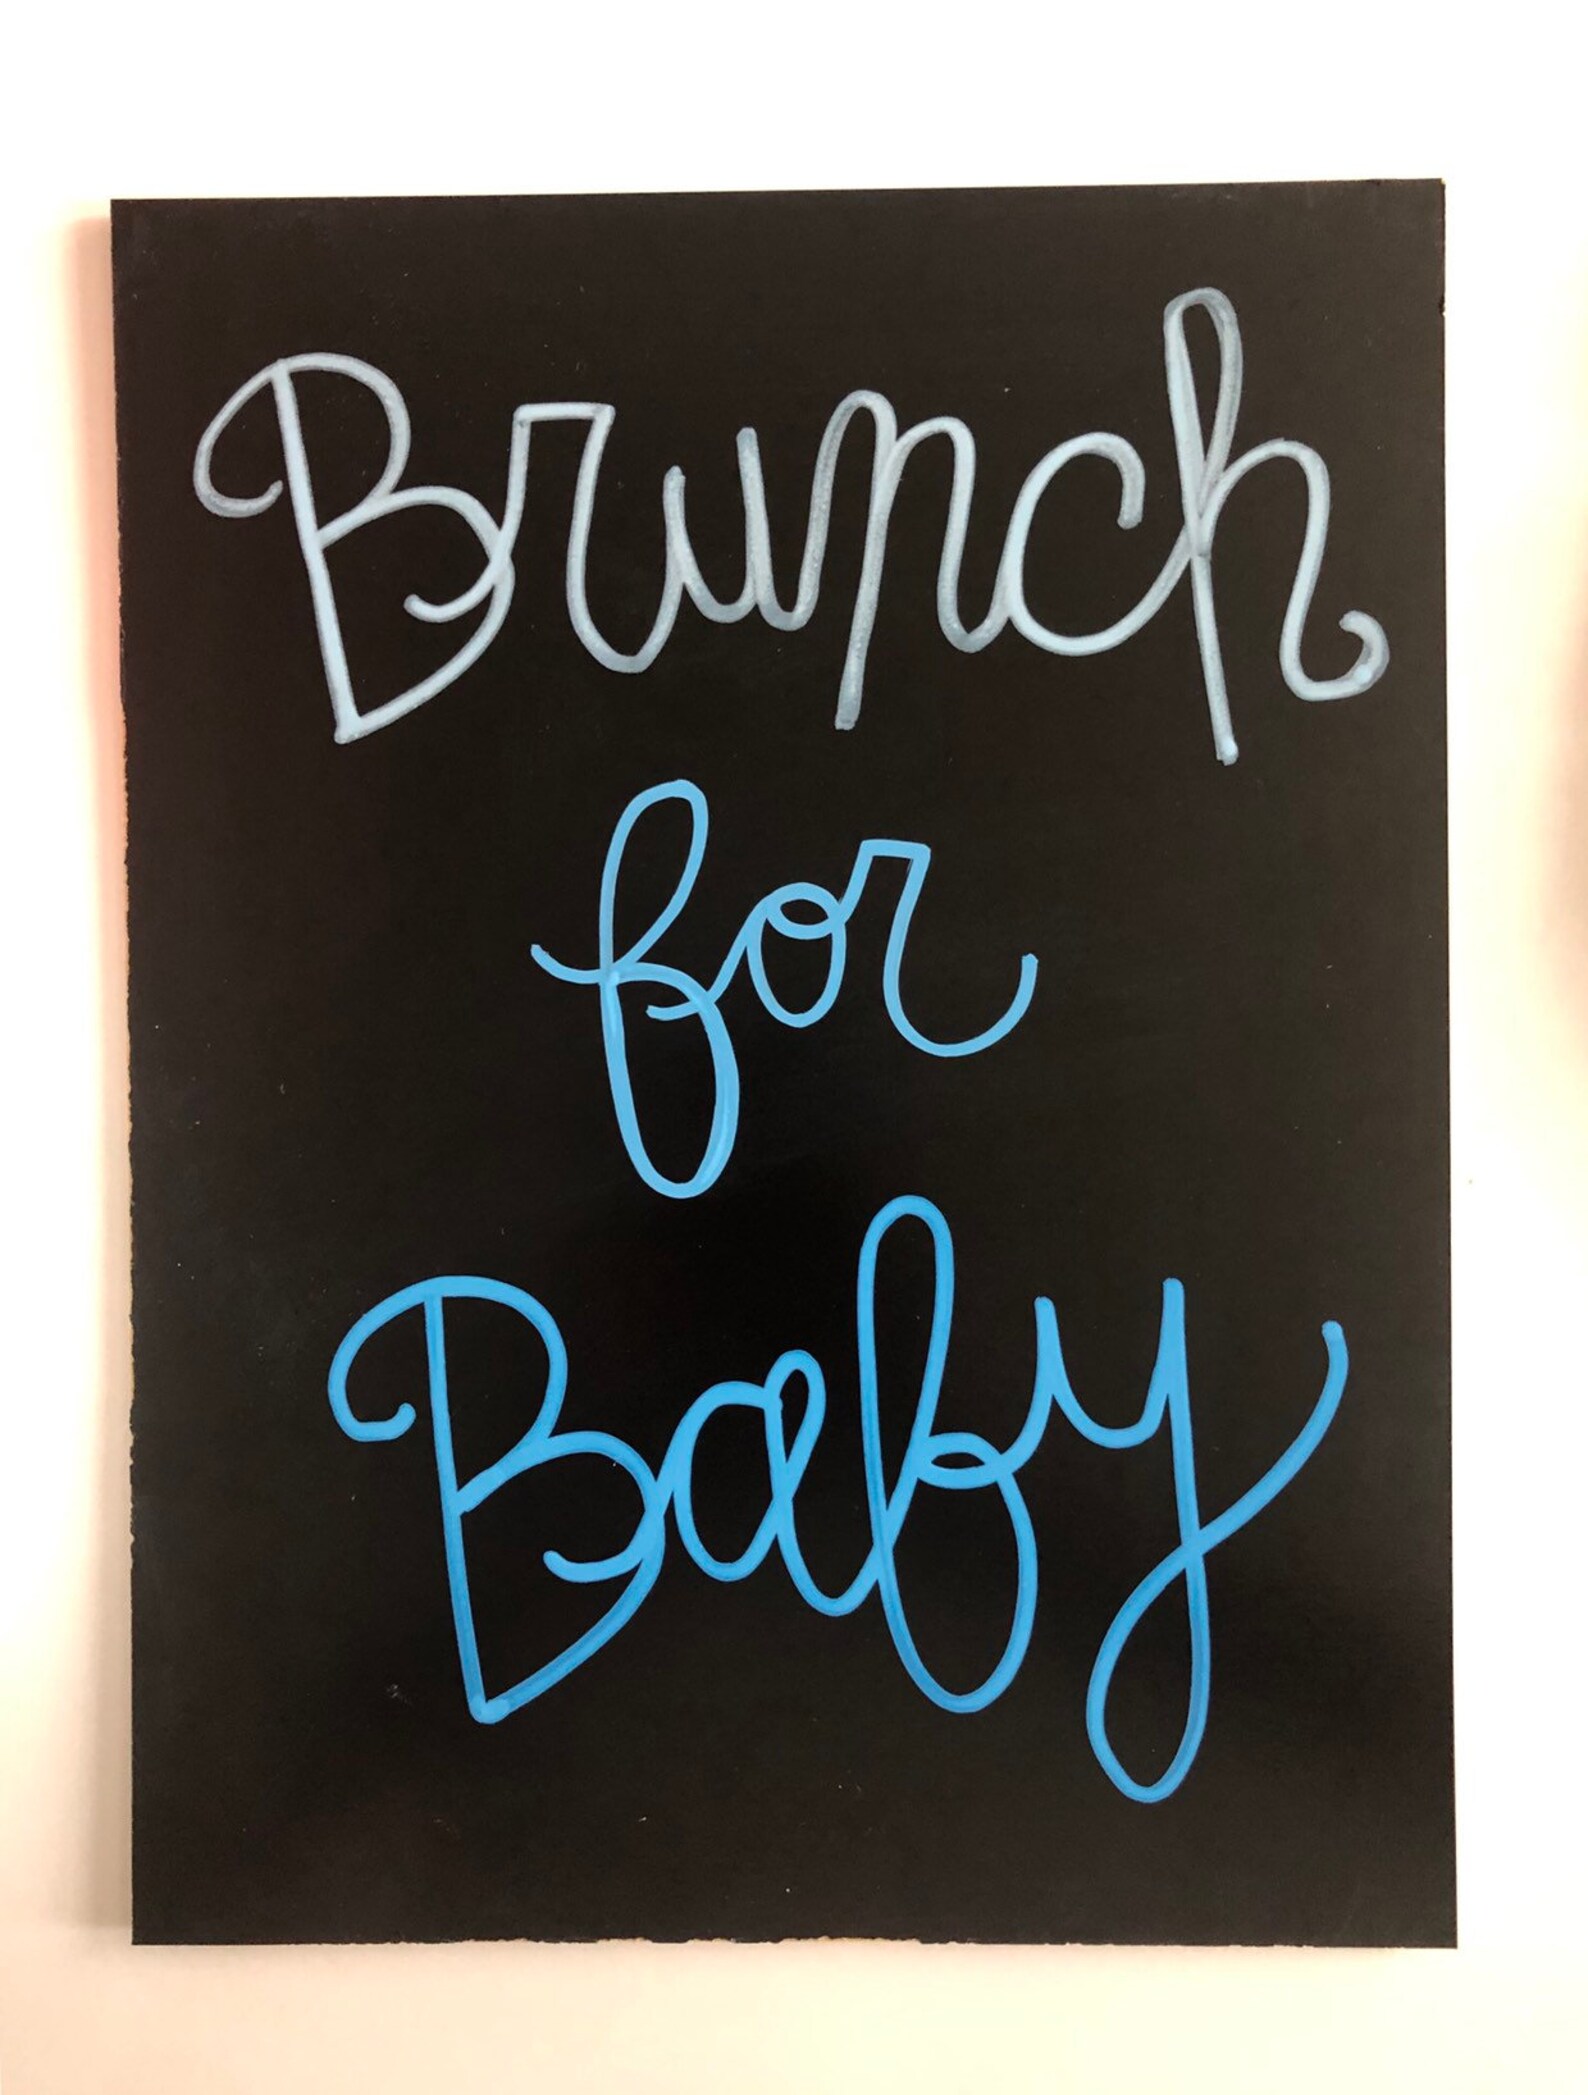 Brunch
for
Baby